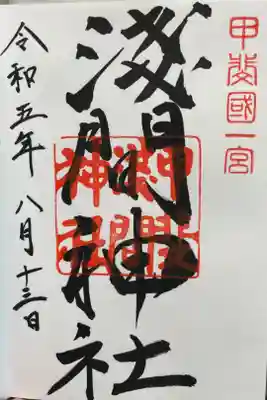 甲斐國一宮
淺間神社
淺間神社
令和五年 八月十三日